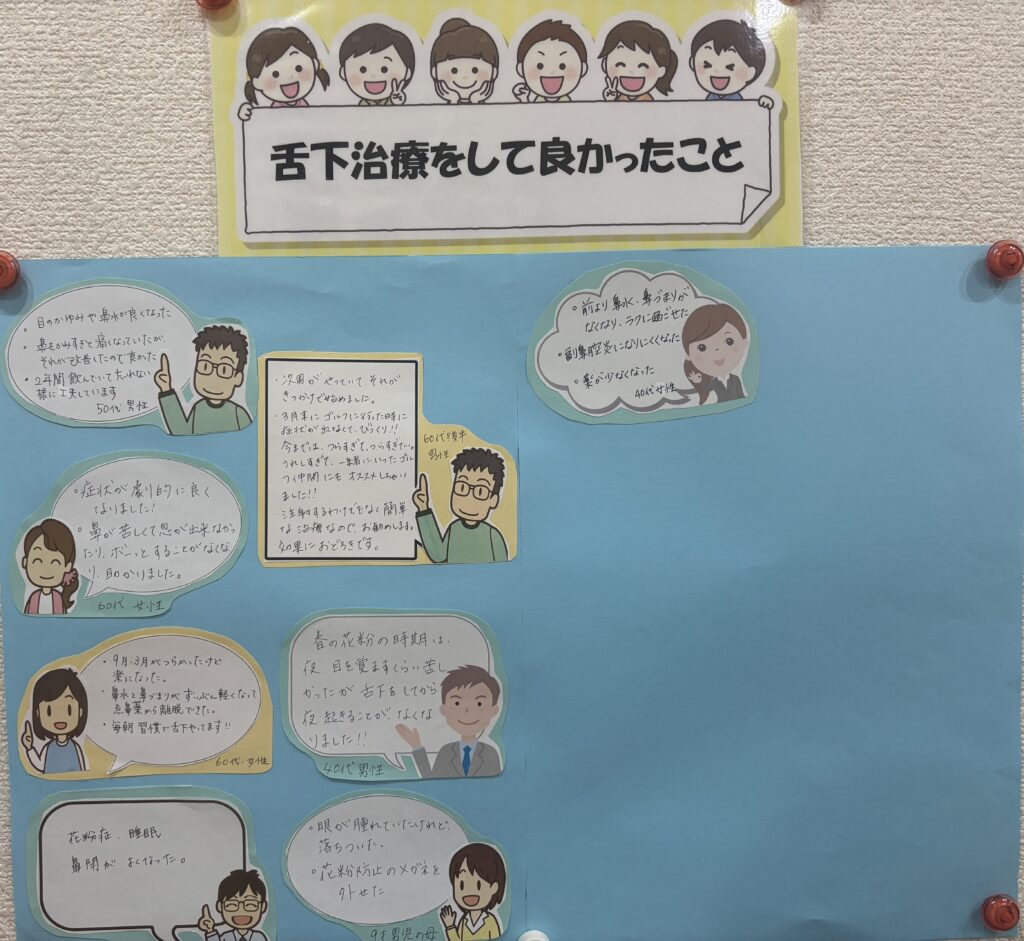 舌下治療をして良かったこと
・目のかゆみや鼻水が良くなった
・鼻もかみすぎと痛くなっていたが、
それが改善したので良かった
・2年間飲んでいて忘れない
様に工夫しています
50代 男性
・症状が劇的に良く
なりました!
・鼻が苦しくて息が出来なかっ
たり、ボーっとすることがなくな
り、助かりました。
60代・女性
・9月、3月がつらかったけど
楽になった。
・鼻水と鼻づまりがずいぶん軽くなって
点鼻薬から離脱できた。
・毎朝習慣で舌下やってます!!
60代・女性
花粉症、睡眠
鼻閉がよくなった。
・次男がやっていて、それが
きっかけで始めました。
・3月末にゴルフに行った時に
症状が出なくて、びっくり!!
今までは、つらすぎて、つらすぎて
うれしすぎて、一緒にいったゴル
フ仲間にもオススメしちゃい
ました!!
・注射するわけでもなく簡単
な治療なので、お勧めします。
効果におどろきです。
60代後半
男性
春の花粉の時期は、
夜、目を覚ますくらい苦し
かったが舌下をしてから
夜起きることがなくな
りました!!
40代男性
・眼が腫れていたけれど、
落ちついた。
・花粉防止のメガネを
外せた
9才男児の母
・前より鼻水、鼻づまりが
なくなり、ラクに過ごせた
・副鼻腔炎になりにくくなった
・薬が少なくなった
40代女性